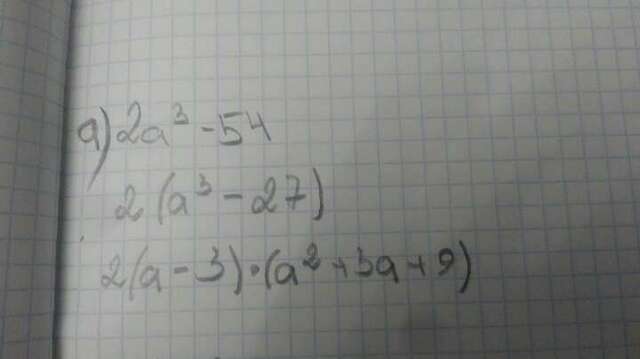 а) 2a³ - 54
2(a³ - 27)
2(a - 3)·(a² + 3a + 9)